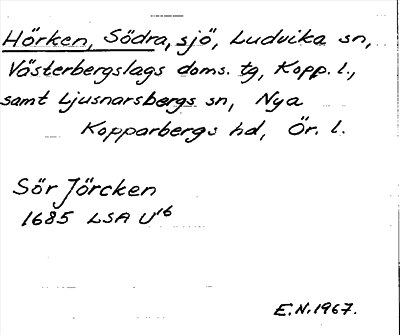 Hörken, Södra, sjö, Ludvika sn,
Västerbergslags doms. tg, Kopp. l.,
samt Ljusnarsbergs sn, Nya
Kopparbergs hd, Ör. l.
Sör Jörcken
1685 LSA U16
E.N. 1967.